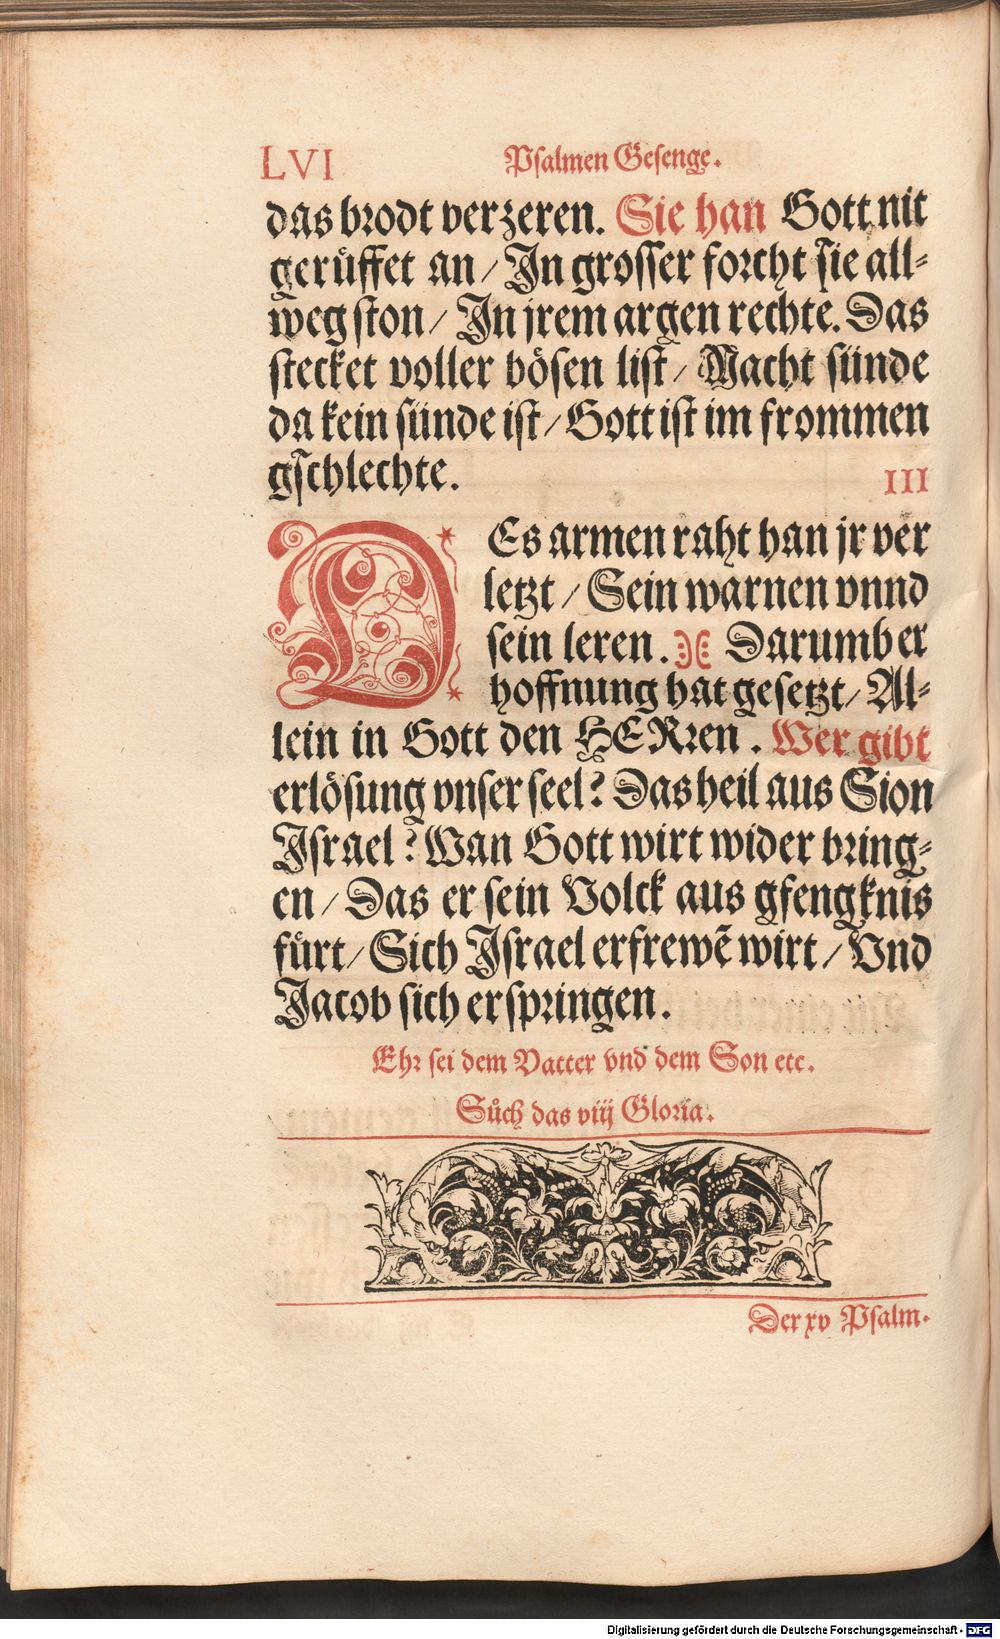 LVI Psalmen Gesenge.
das brodt verzeren. Sie han Gott nit
gerůffet an/ In grosser forcht sie all-
weg ston/ In jrem argen rechte. Das
stecket voller bösen list/ Macht sünde
da kein sünde ist/ Gott ist im frommen
gschlechte.
III
DEs armen raht han jr ver
letzt/ Sein warnen vnnd
sein leren. Darumb er
hoffnung hat gesetzt/ Al-
lein in Gott den HERren. Wer gibt
erlösung vnser seel? Das heil aus Sion
Israel? Wan Gott wirt wider bring-
en/ Das er sein Volck aus gfengknis
fürt/ Sich Israel erfrewẽ wirt/ Vnd
Jacob sich erspringen.
Ehr sei dem Vatter vnd dem Son etc.
Sůch das viij Gloria.
Der xv Psalm.
Digitalisierung gefördert durch die Deutsche Forschungsgemeinschaft - DFG